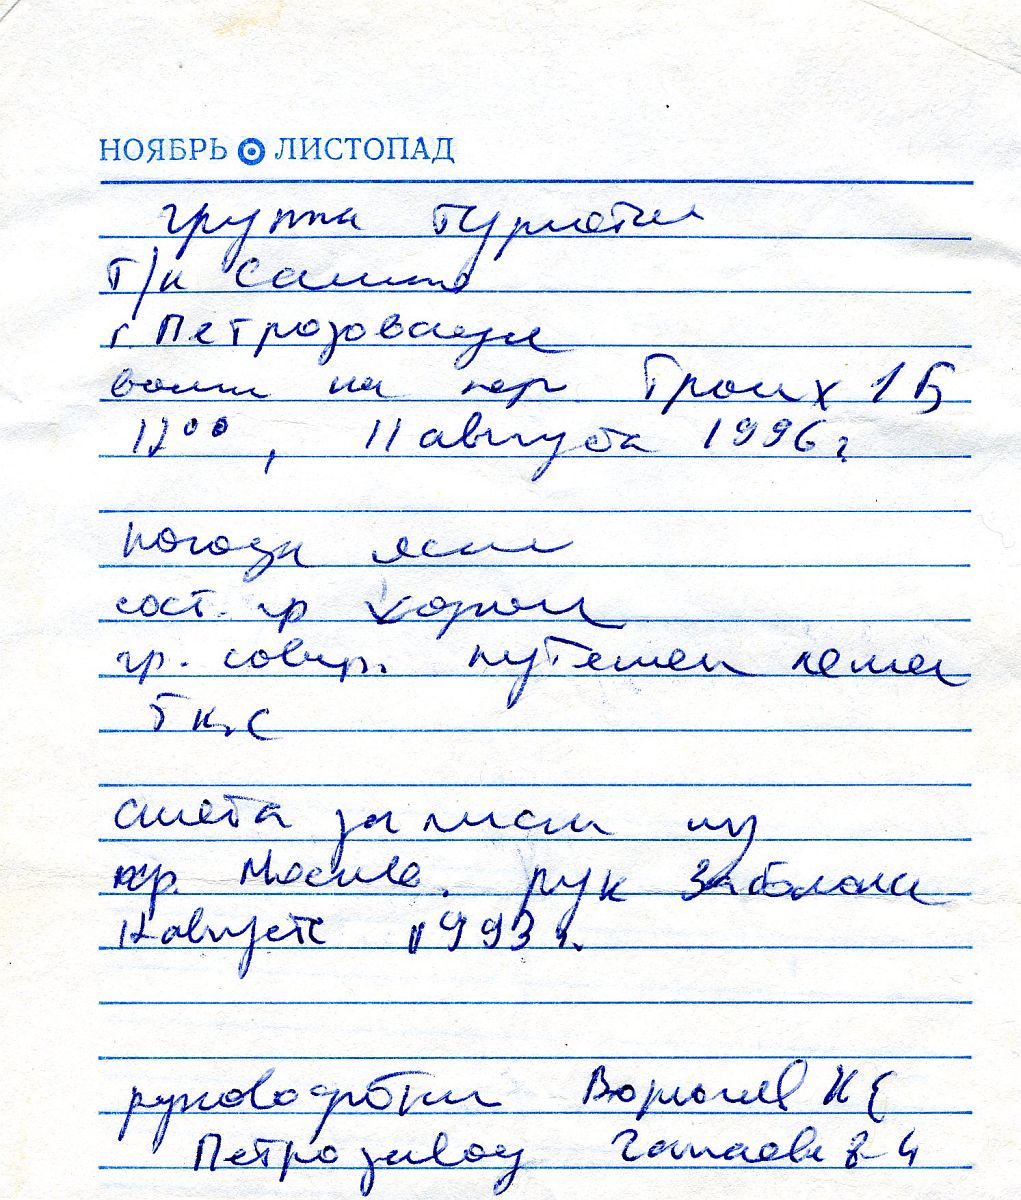 НОЯБРЬ ЛИСТОПАД
группа туристов
т/к Сампо
г. Петрозаводск
взошли на пер. Троих 1Б
12⁰⁰, 11 августа 1996 г
погода ясная
сост. гр хорошее
гр. соверш. путешествие пешее
снята записка из
гр. Москва. рук
12 августа 1993 г.
руководитель Н Е
Петрозавод Чапаева 8-4